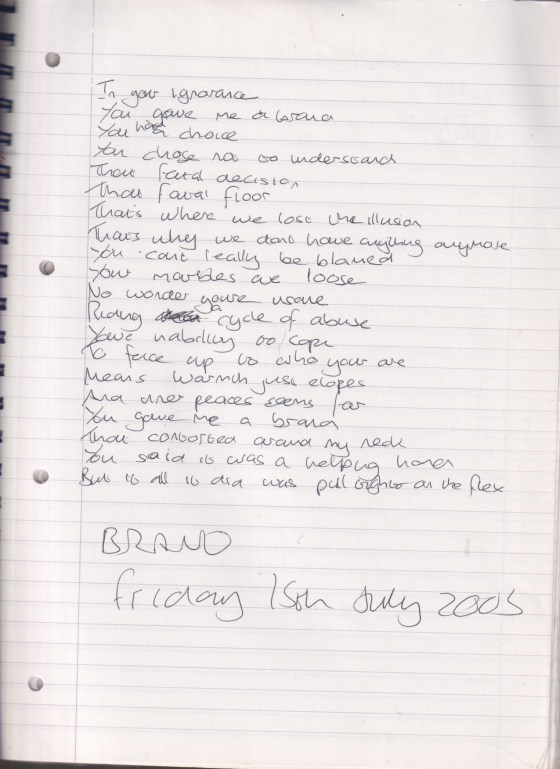 In your ignorance
You gave me a brand
You had a choice
You chose not to understand
That fatal decision
That fatal floor
That's where we lost the illusion
That's why we dont have anything anymore
You can't really be blamed
Your marbles are loose
No wonder you're insane
Riding a cycle of abuse
Your inability to cope
To face up to who your are
Means warmth just elopes
And inner peaces seems far
You gave me a brand
That contorted around my neck
You said it was a helping hand
But it all it did was pull tighter on the flex
BRAND
friday 15th July 2005